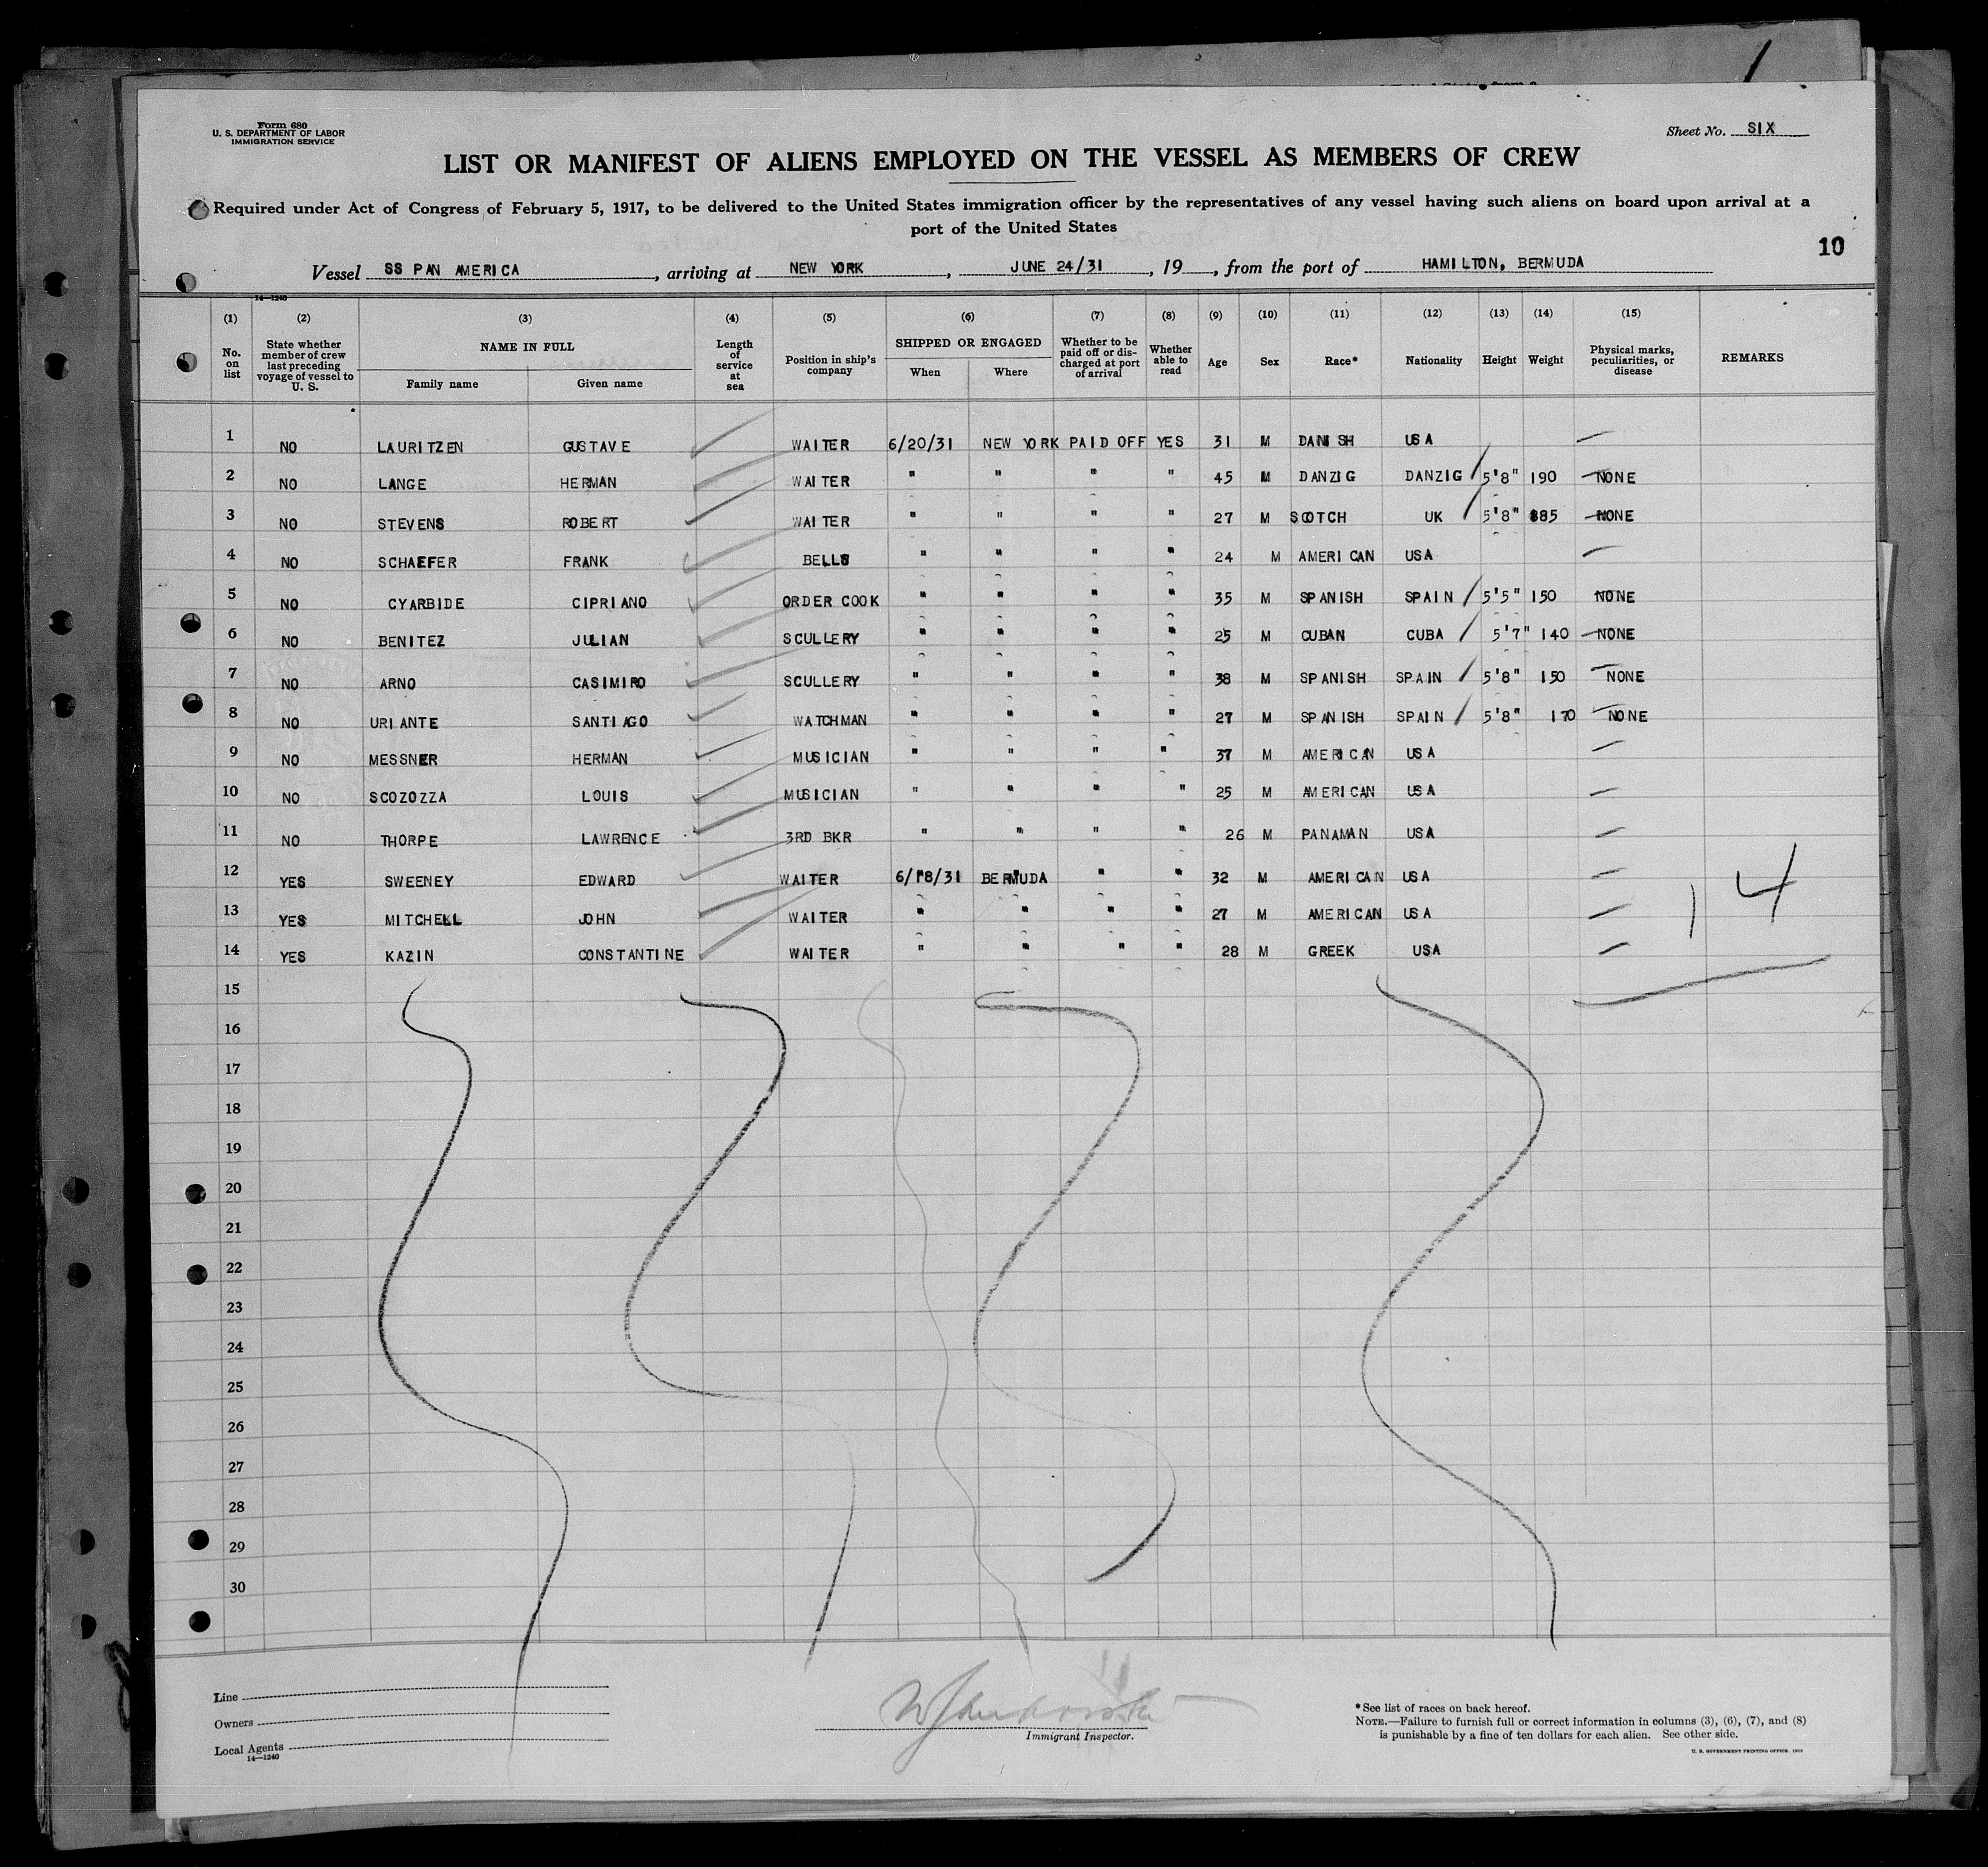 Form 680
U. S. DEPARTMENT OF LABOR
IMMIGRATION SERVICE
Sheet No. SIX
LIST OR MANIFEST OF ALIENS EMPLOYED ON THE VESSEL AS MEMBERS OF CREW
Required under Act of Congress of February 5, 1917, to be delivered to the United States immigration officer by the representatives of any vessel having such aliens on board upon arrival at a
port of the United States
10
Vessel SS PAN AMERICA, arriving at NEW YORK, JUNE 24/31, 19, from the port of HAMILTON, BERMUDA
14—1240
(1) (2) (3) (4) (5) (6) (7) (8) (9) (10) (11) (12) (13) (14) (15)
No. on list State whether member of crew last preceding voyage of vessel to U. S. NAME IN FULL Family name Given name Length of service at sea Position in ship's company SHIPPED OR ENGAGED When Where Whether to be paid off or discharged at port of arrival Whether able to read Age Sex Race* Nationality Height Weight Physical marks, peculiarities, or disease REMARKS
1 NO LAURITZEN GUSTAVE WAITER 6/20/31 NEW YORK PAID OFF YES 31 M DANISH USA
2 NO LANGE HERMAN WAITER " " " " 45 M DANZIG DANZIG 5'8" 190 NONE
3 NO STEVENS ROBERT WAITER " " " " 27 M SCOTCH UK 5'8" 185 NONE
4 NO SCHAEFER FRANK BELLS " " " " 24 M AMERICAN USA
5 NO CYARBIDE CIPRIANO ORDER COOK " " " " 35 M SPANISH SPAIN 5'5" 150 NONE
6 NO BENITEZ JULIAN SCULLERY " " " " 25 M CUBAN CUBA 5'7" 140 NONE
7 NO ARNO CASIMIRO SCULLERY " " " " 38 M SPANISH SPAIN 5'8" 150 NONE
8 NO URIANTE SANTIAGO WATCHMAN " " " " 27 M SPANISH SPAIN 5'8" 170 NONE
9 NO MESSNER HERMAN MUSICIAN " " " " 37 M AMERICAN USA
10 NO SCOZOZZA LOUIS MUSICIAN " " " " 25 M AMERICAN USA
11 NO THORPE LAWRENCE 3RD BKR " " " " 26 M PANAMAN USA
12 YES SWEENEY EDWARD WAITER 6/18/31 BERMUDA " " 32 M AMERICAN USA
13 YES MITCHELL JOHN WAITER " " " " 27 M AMERICAN USA
14 YES KAZIN CONSTANTINE WAITER " " " " 28 M GREEK USA
14
15
16
17
18
19
20
21
22
23
24
25
26
27
28
29
30
Line
Owners
Local Agents
14—1240
Immigrant Inspector.
*See list of races on back hereof.
NOTE.—Failure to furnish full or correct information in columns (3), (6), (7), and (8)
is punishable by a fine of ten dollars for each alien. See other side.
U. S. GOVERNMENT PRINTING OFFICE